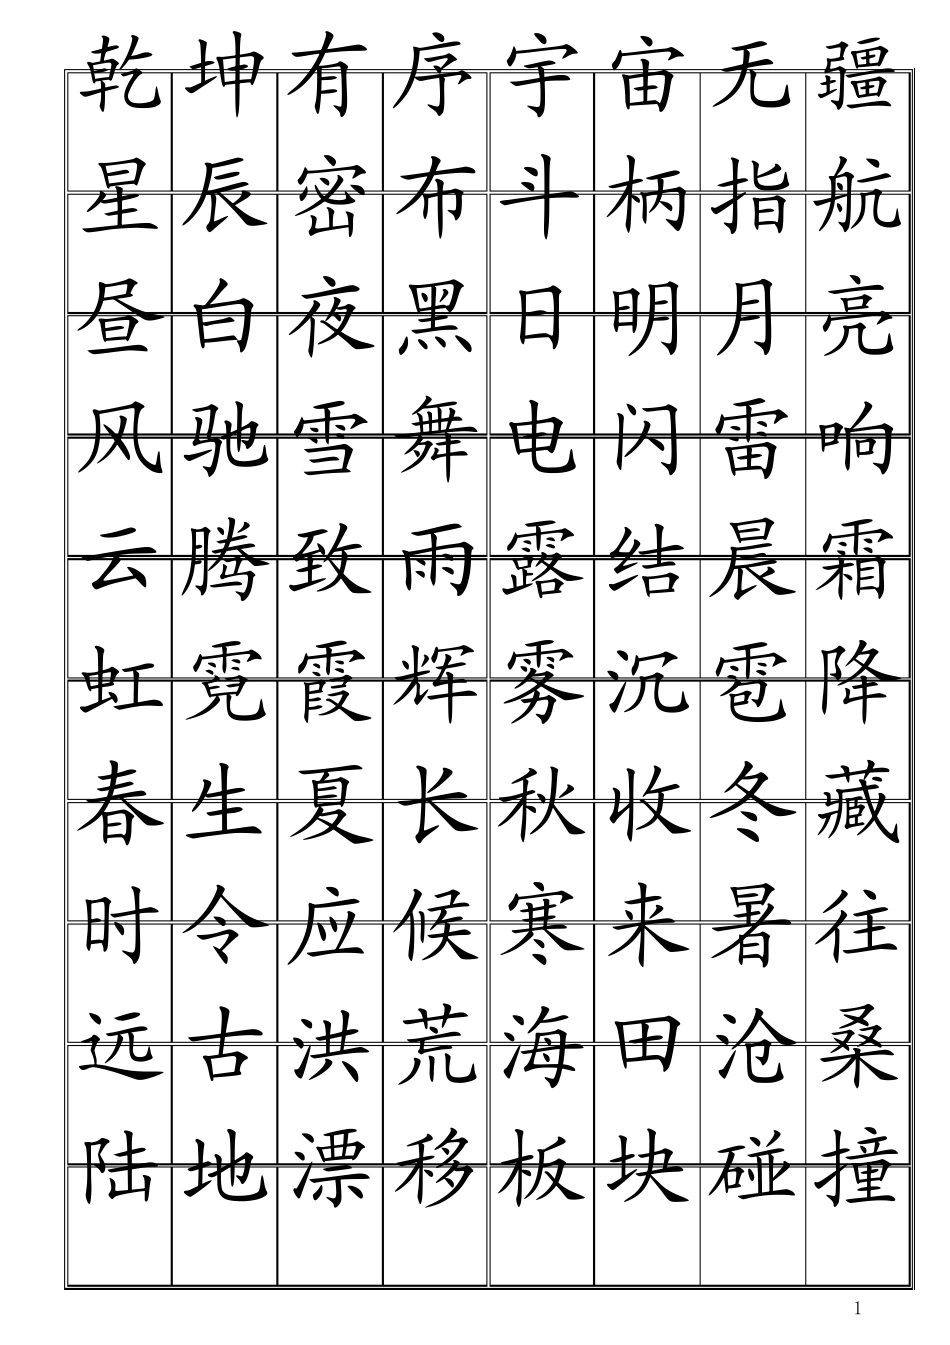 乾坤有序宇宙无疆
星辰密布斗柄指航
昼白夜黑日明月亮
风驰雪舞电闪雷响
云腾致雨露结晨霜
虹霓霞辉雾沉雹降
春生夏长秋收冬藏
时令应候寒来暑往
远古洪荒海田沧桑
陆地漂移板块碰撞
1